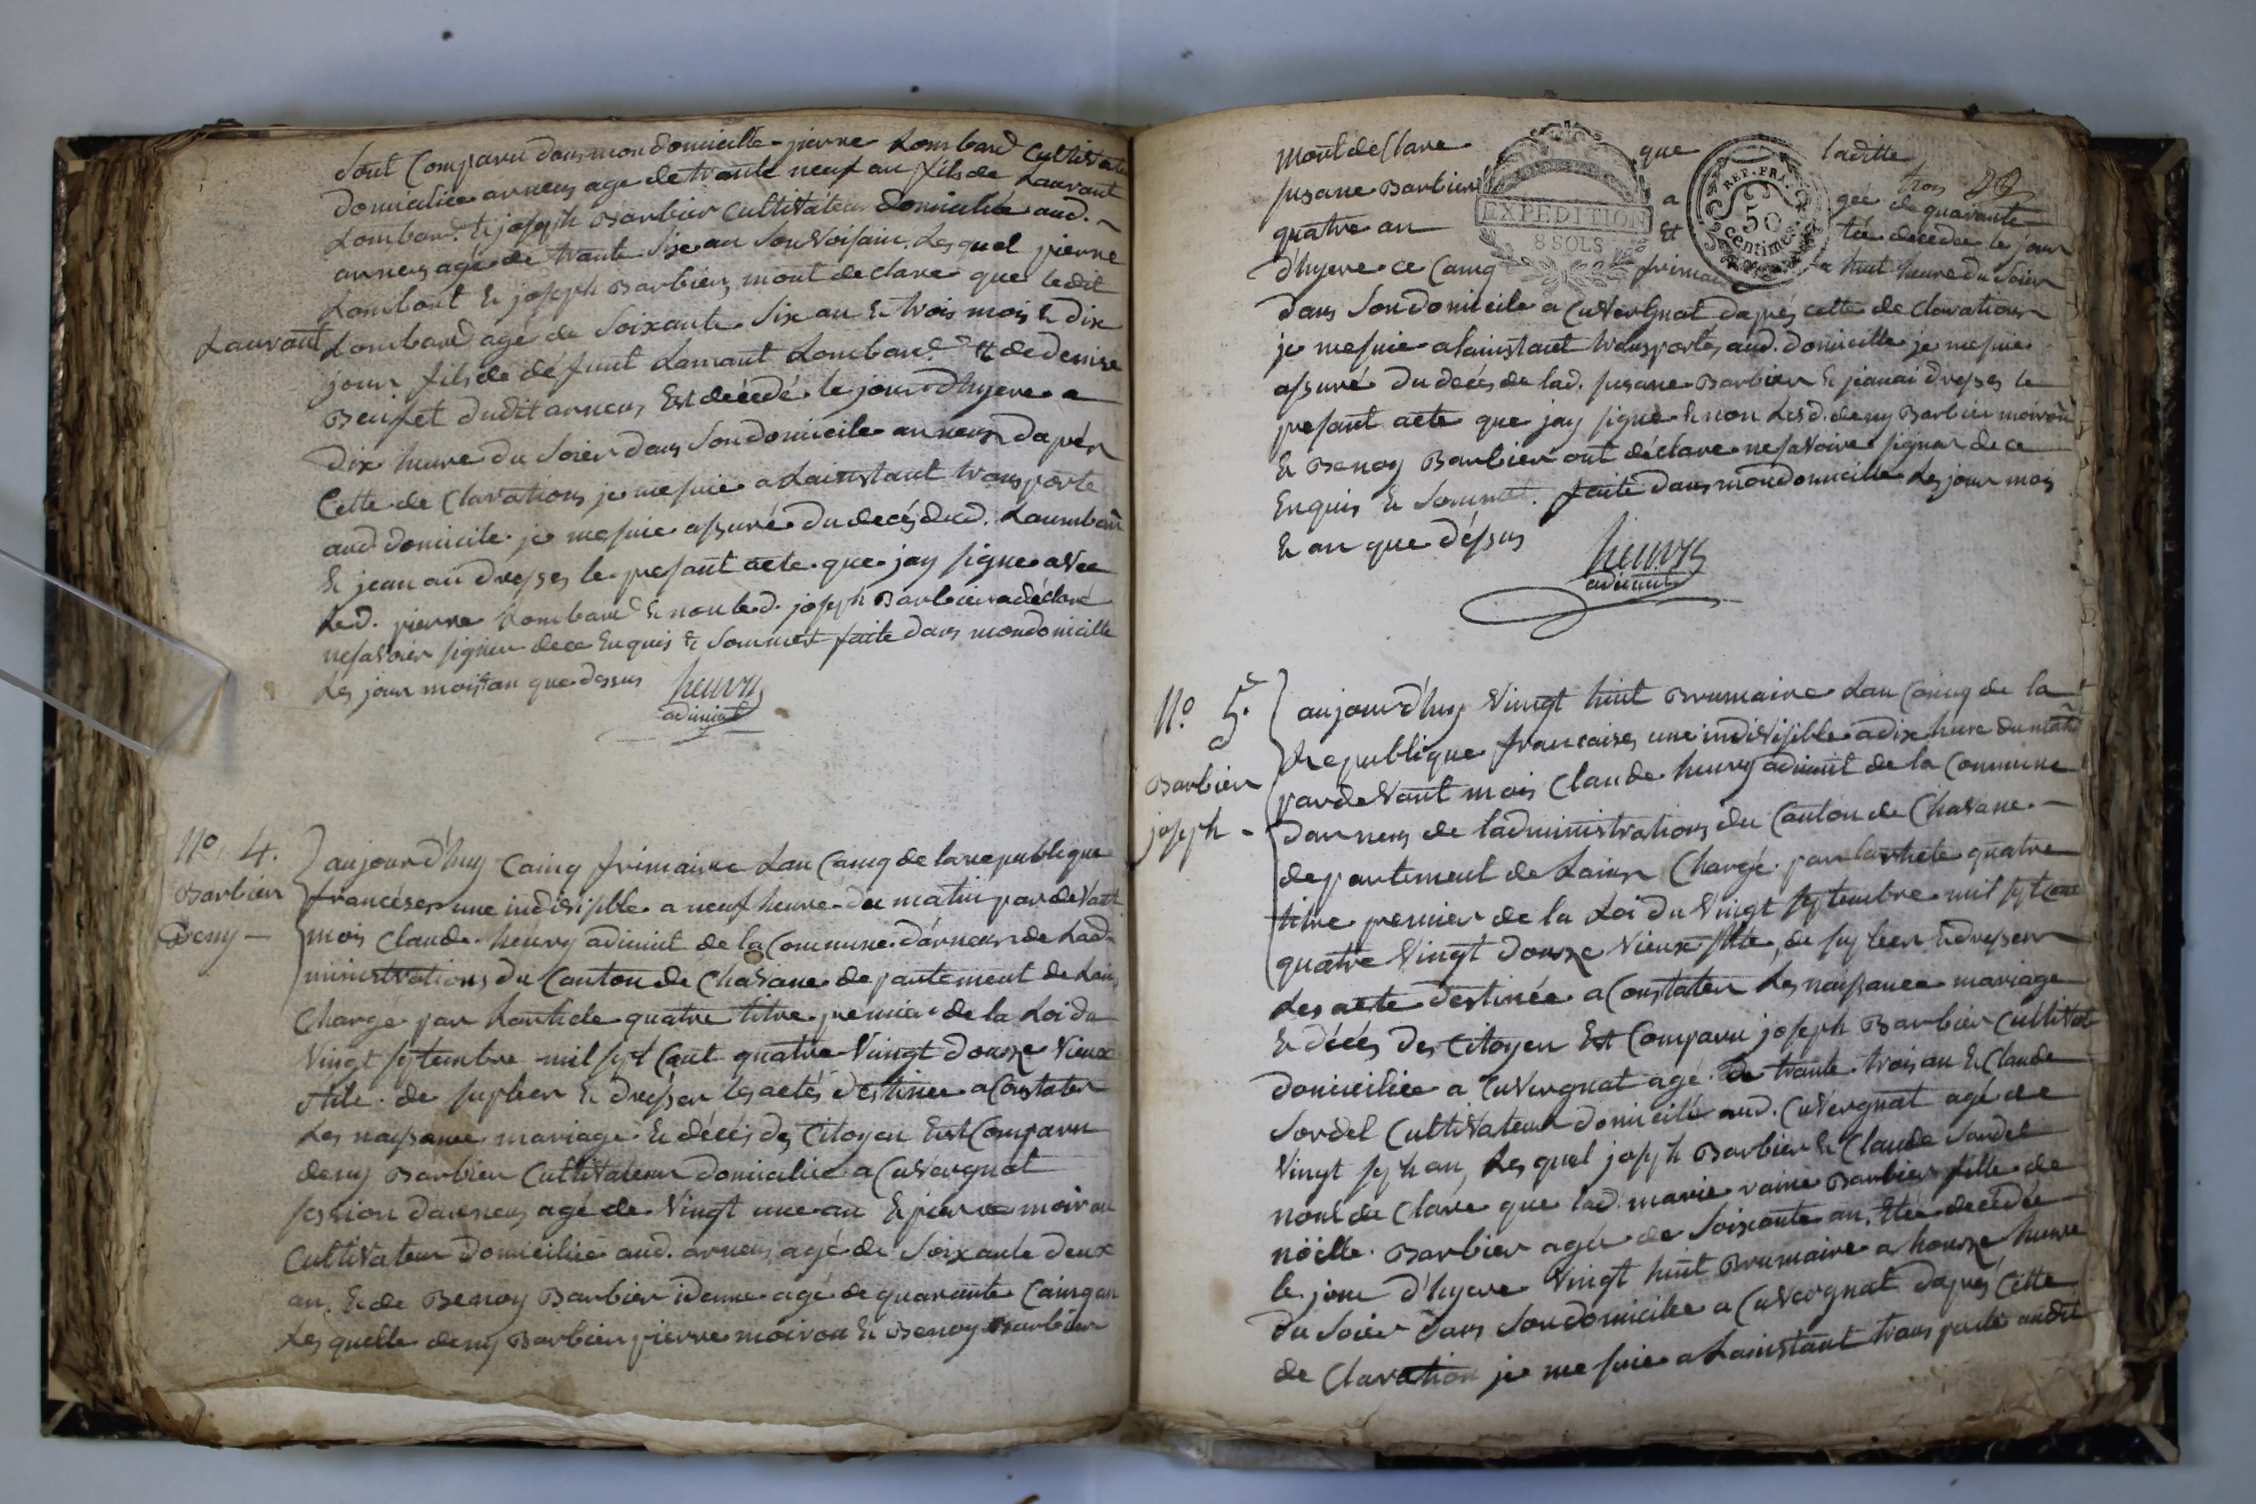 Sont Comparu dans mon domicille pierre Lombard Cultivateur
domicilice arneus age de trante neuf an fils de Laurant
Lombard. & joseph Barbier Cultivateur domicilié aud.
arneus age de trante Six an Son Voisain. Lesquel pierre
Lombart & joseph Barbier, mont declare que ledit
Laurant Lombard age de Soixante Six an & trois mois & dix
jour fils de défunt Lamant Lombard & de denise
Beufet dudit arneus Est décédé le jour d'hyere a
dix heure du Soier dans Son domicile arneus daprés
Cette de Clarations je me suie a Lainstant transporte
aud domicile je me suie assuré du decés dud. Laumbart
& jeanai dresses le presant acte que jay signe avec
Led. pierre Lombard & non led. joseph Barbier a déclaré
ne savoier signer de ce Enquis & Sommet faite dans mon domicille
Les jour mois & an que dessus
heuvry
adimint
No 4.
Barbier
Deny —
aujourd'huy Cainq frimaire Lan Cainq de la republique
francéses une indivisible a neuf heure du matin par devant
mois Claude heuvry adimint de la Commune d'arneus de Lad
ministrations du Canton de Chavane departement de Lain
Chargé par Lartide quatre titre premier de la Loi du
Vingt septembre mil sept Cent quatre Vingt douze Vieux
stile de supleer & dresser les actés destinee a Constater
Les naissance mariage & décés des Citoyen Est Comparu
deny Barbier Cultivateur domicilie a Cuvergnat
session darneus agé de Vingt une an & pierre moiron
Cultivateur domicilié aud. arneus agé de Soixante deux
an. & de Benoy Barbier idame age de quarante Cainq an
Lesquelle deny Barbier pierre moiron & Benoy Barbier
mont déClare que laditte
susane Barbier a gée de quarante trois
quatre an Et tée decedee le jour
d'hyere ce Cainq frimaire a huit heure du Soier
EXPEDITION
8 SOLS
REP. FRA.
50
Centimes
dans Son domicile a Cuvergnat daprés cette de Clarations
je me suie a lainstant transportés aud. domicille je me suie
assuré du decés de lad. susane Barbier & jeanai dresses le
presant acte que jay signe & non Lesd. deny Barbier moiron
& Benoy Barbier ont déclare ne savoire signer de ce
Enquis & Sommet. faite dans mon domicille Les jour mois
& an que déssus
heuvry
adimint
No. 5.
Barbier
joseph -
aujourd'huy Vingt huit Brumaire Lan Cainq de la
Republique francaises une indivisible a dix heure du matin
pardevant mois Claude heuvry adimint de la Commune
darneus de ladministrations du Canton de Chavane
departement de Lain Chargé par lartiete quatre
titre premier de la Loi du Vingt septembre mil sept Cent
quatre Vingt douze Vieux stile, de supleer & dresser
Les acte destinée a Constater Les naissance mariage
& décés des Citoyen Est Comparu joseph Barbier Cultivat
domicilice a Cuvergnat agé de trante trois an & Claude
Sordel Cultivateur domicilié aud. Cuvergnat agé de
Vingt sept an, Lesquel joseph Barbier & Claude Sordel
nont de Clare que lad. marie raine Barbier fille de
nöelle Barbier agée de Soixante an. Etée decédée
le jour d'hyere Vingt huit Brumaire a honze heure
du Soier dans Son domicilee a Cuvergnat daprés Cette
de Claration je me suie a Lainstant transporté audit